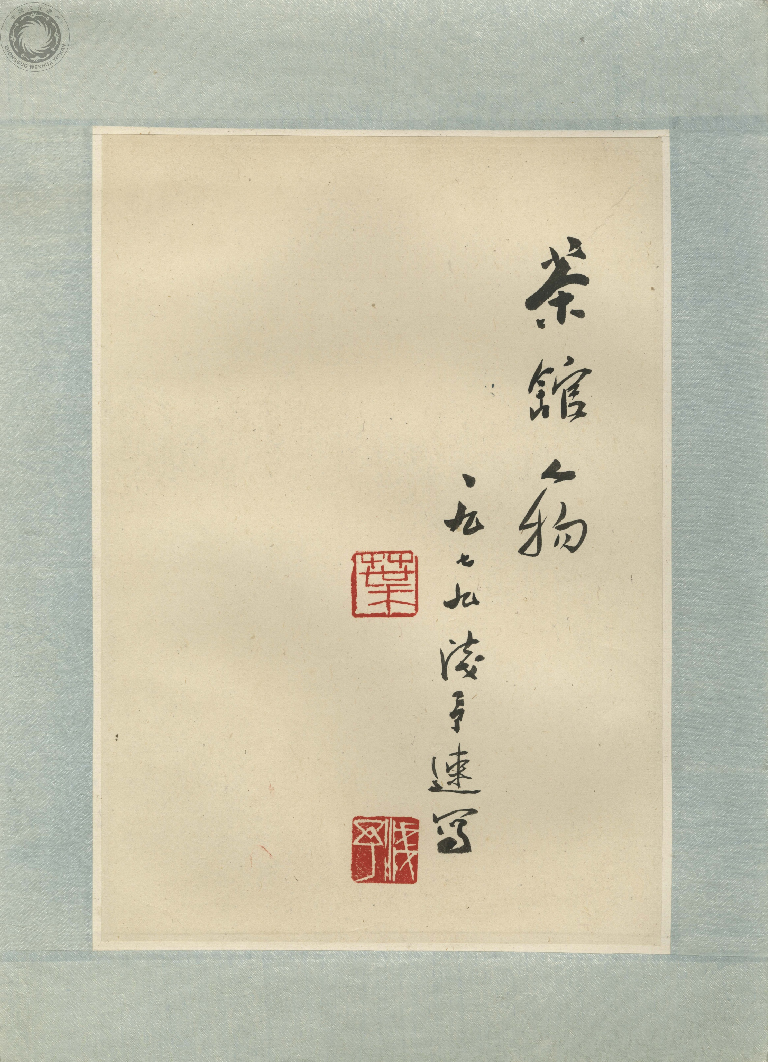 茶館人物
一九七九淺予速寫
葉
淺予